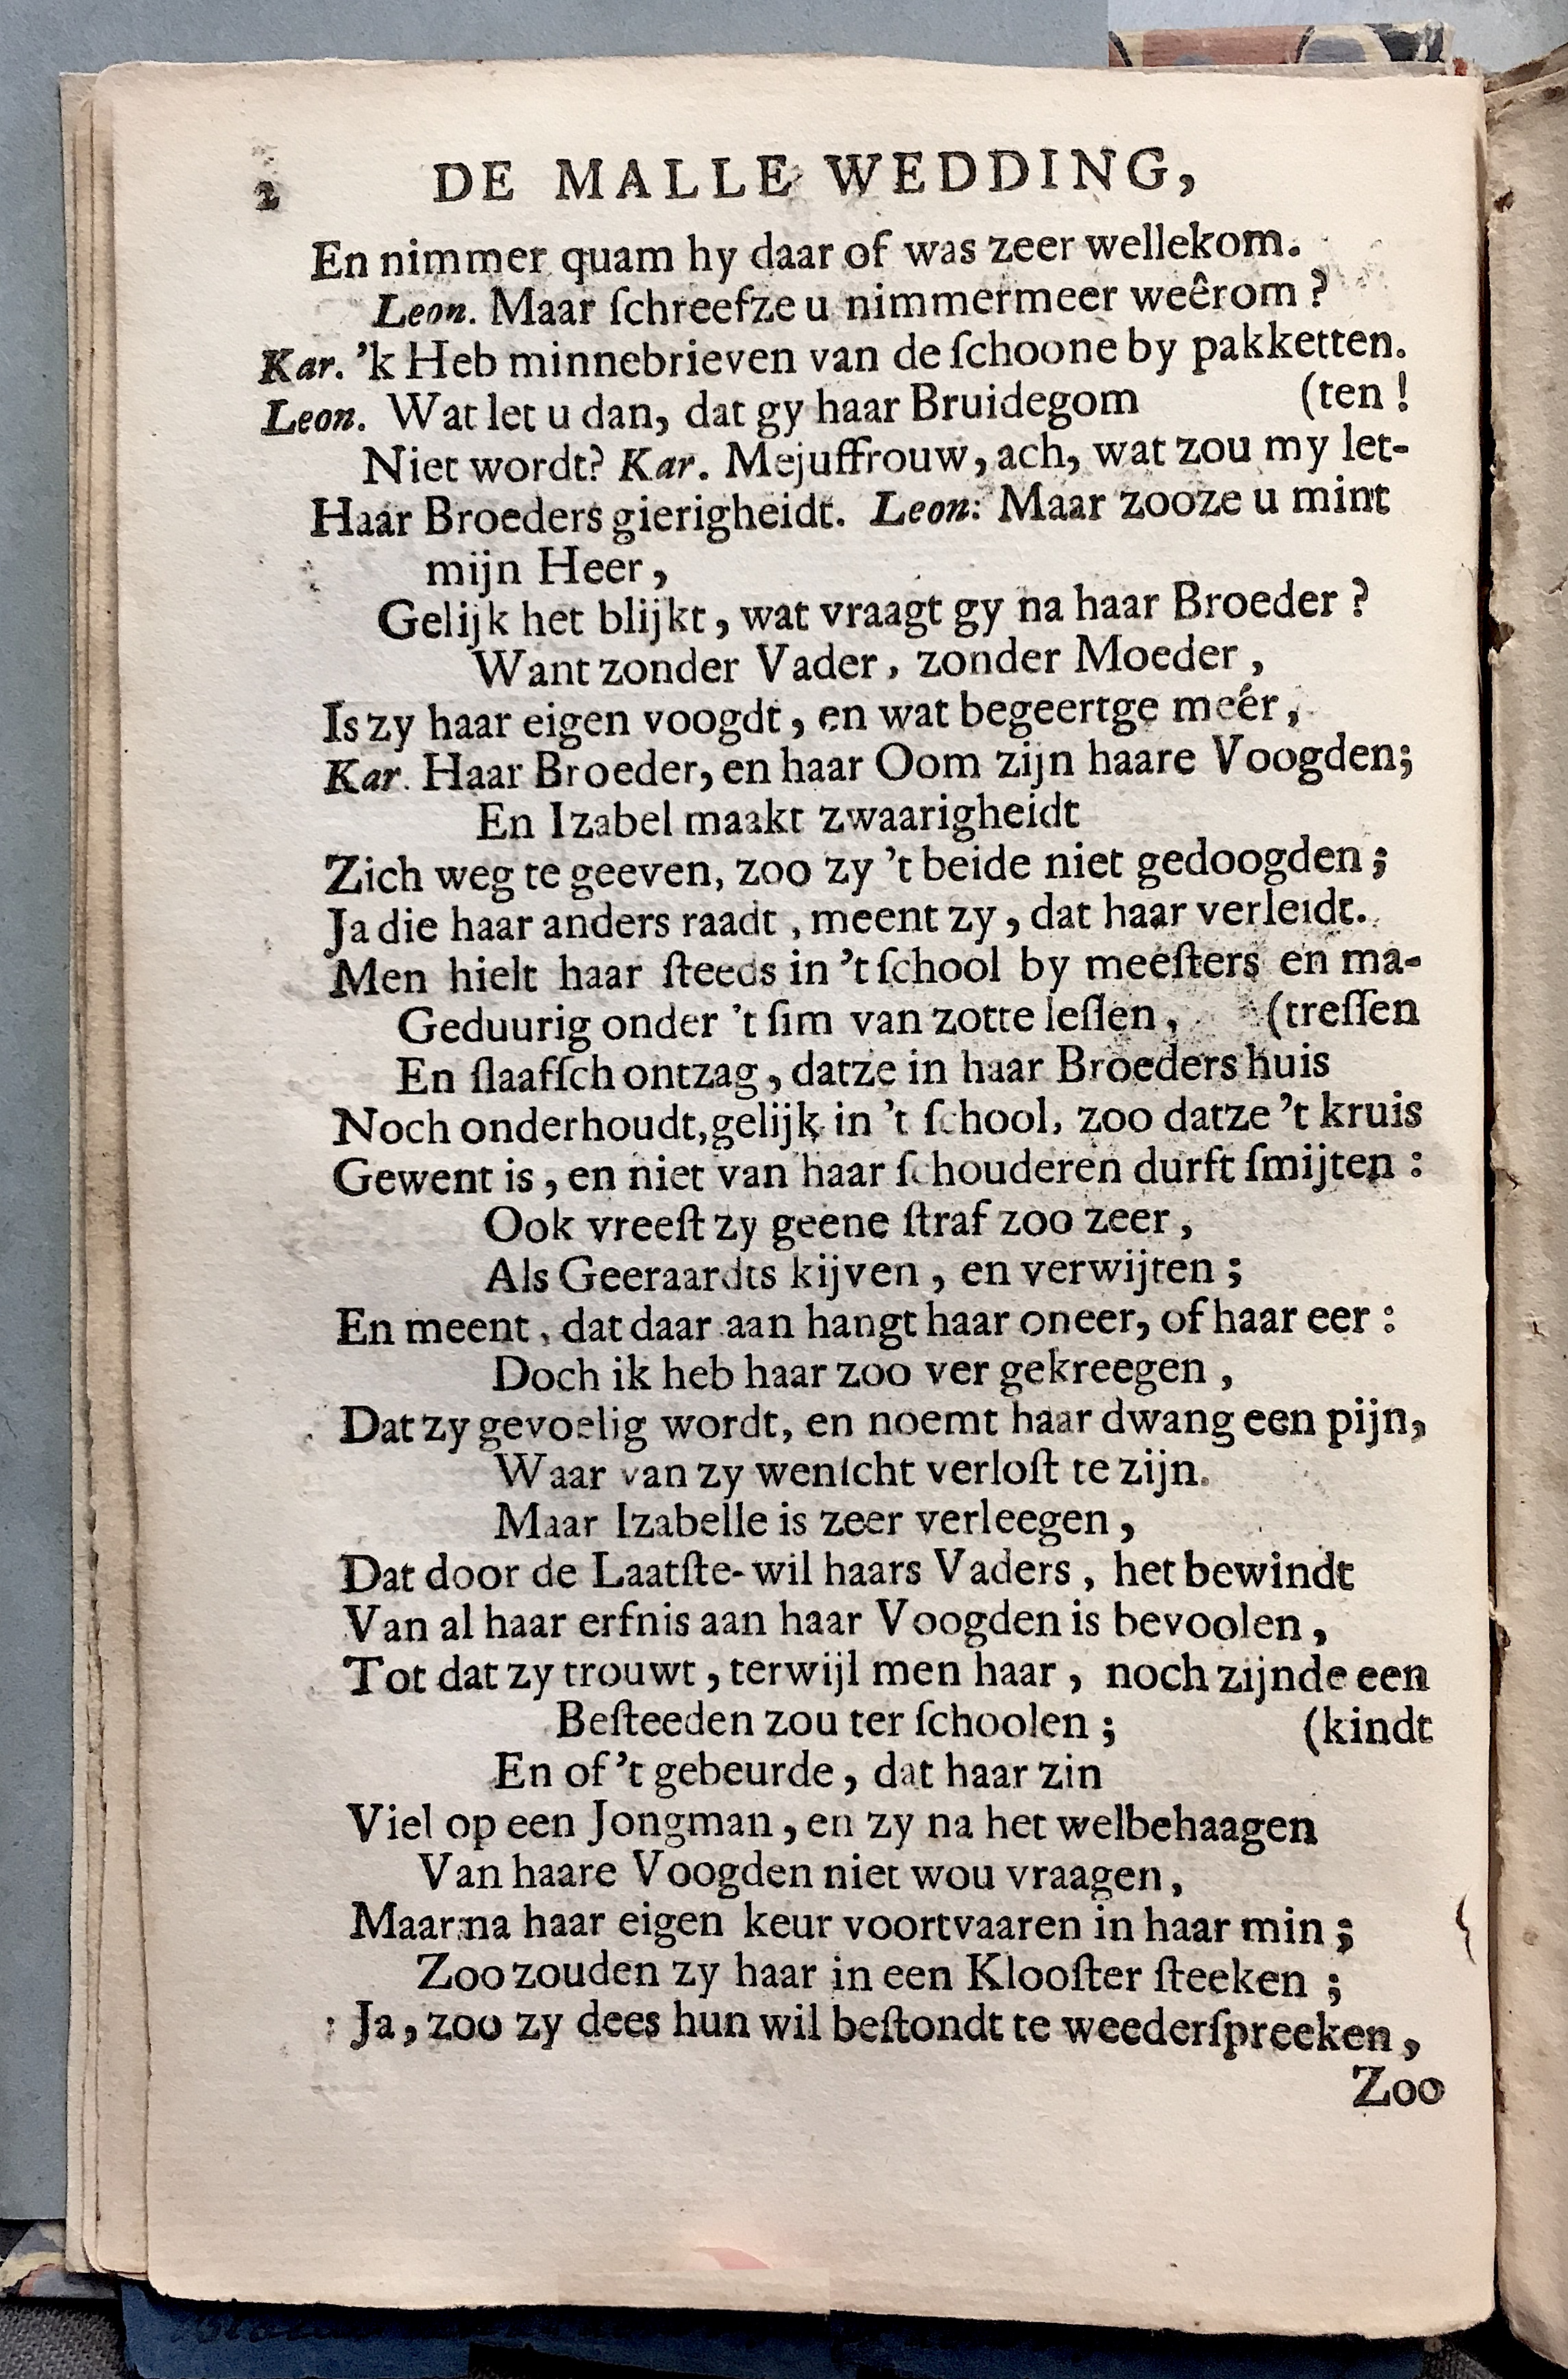 2 DE MALLE WEDDING,
En nimmer quam hy daar of was zeer wellekom.
Leon. Maar ſchreefze u nimmermeer weêrom ?
Kar. 'k Heb minnebrieven van de ſchoone by pakketten.
Leon. Wat let u dan, dat gy haar Bruidegom (ten !
Niet wordt? Kar. Mejuffrouw, ach, wat zou my let-
Haar Broeders gierigheidt. Leon: Maar zooze u mint
mijn Heer,
Gelijk het blijkt, wat vraagt gy na haar Broeder ?
Want zonder Vader, zonder Moeder,
Is zy haar eigen voogdt, en wat begeertge meér,
Kar. Haar Broeder, en haar Oom zijn haare Voogden;
En Izabel maakt zwaarigheidt
Zich weg te geeven, zoo zy 't beide niet gedoogden;
Ja die haar anders raadt, meent zy, dat haar verleidt.
Men hielt haar ſteeds in 't ſchool by meeſters en ma-
Geduurig onder 't ſim van zotte leſſen, (treſſen
En ſlaafſch ontzag, datze in haar Broeders huis
Noch onderhoudt, gelijk in 't ſchool, zoo datze 't kruis
Gewent is, en niet van haar ſchouderen durft ſmijten :
Ook vreeſt zy geene ſtraf zoo zeer,
Als Geeraardts kijven, en verwijten;
En meent, dat daar aan hangt haar oneer, of haar eer :
Doch ik heb haar zoo ver gekreegen,
Dat zy gevoelig wordt, en noemt haar dwang een pijn,
Waar van zy wenſcht verloſt te zijn.
Maar Izabelle is zeer verleegen,
Dat door de Laatſte-wil haars Vaders, het bewindt
Van al haar erfnis aan haar Voogden is bevoolen,
Tot dat zy trouwt, terwijl men haar, noch zijnde een
Beſteeden zou ter ſchoolen; (kindt
En of 't gebeurde, dat haar zin
Viel op een Jongman, en zy na het welbehaagen
Van haare Voogden niet wou vraagen,
Maar na haar eigen keur voortvaaren in haar min;
Zoo zouden zy haar in een Klooſter ſteeken;
Ja, zoo zy dees hun wil beſtondt te weederſpreeken,
Zoo